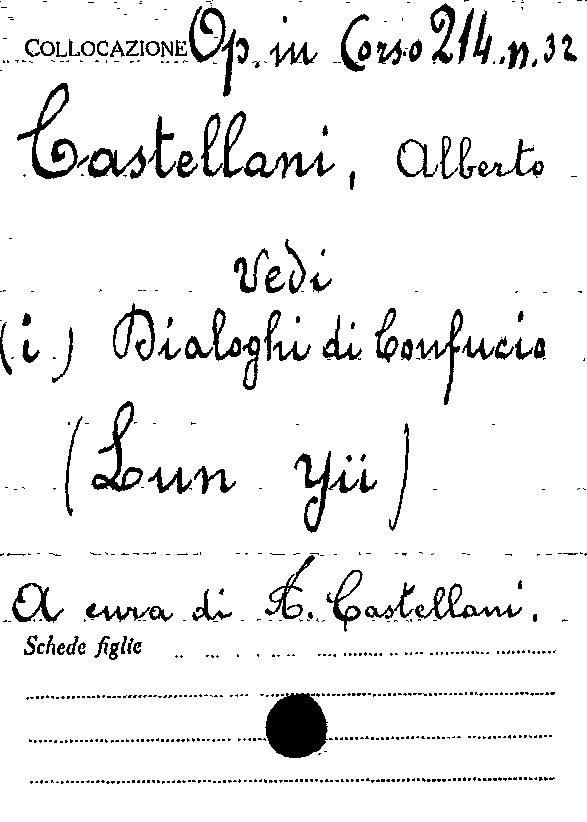 COLLOCAZIONE Op. in Corso 214. n. 32
Castellani, Alberto
Vedi
(i) Dialoghi di Confucio
(Lun yü)
A cura di A. Castellani.
Schede figlie